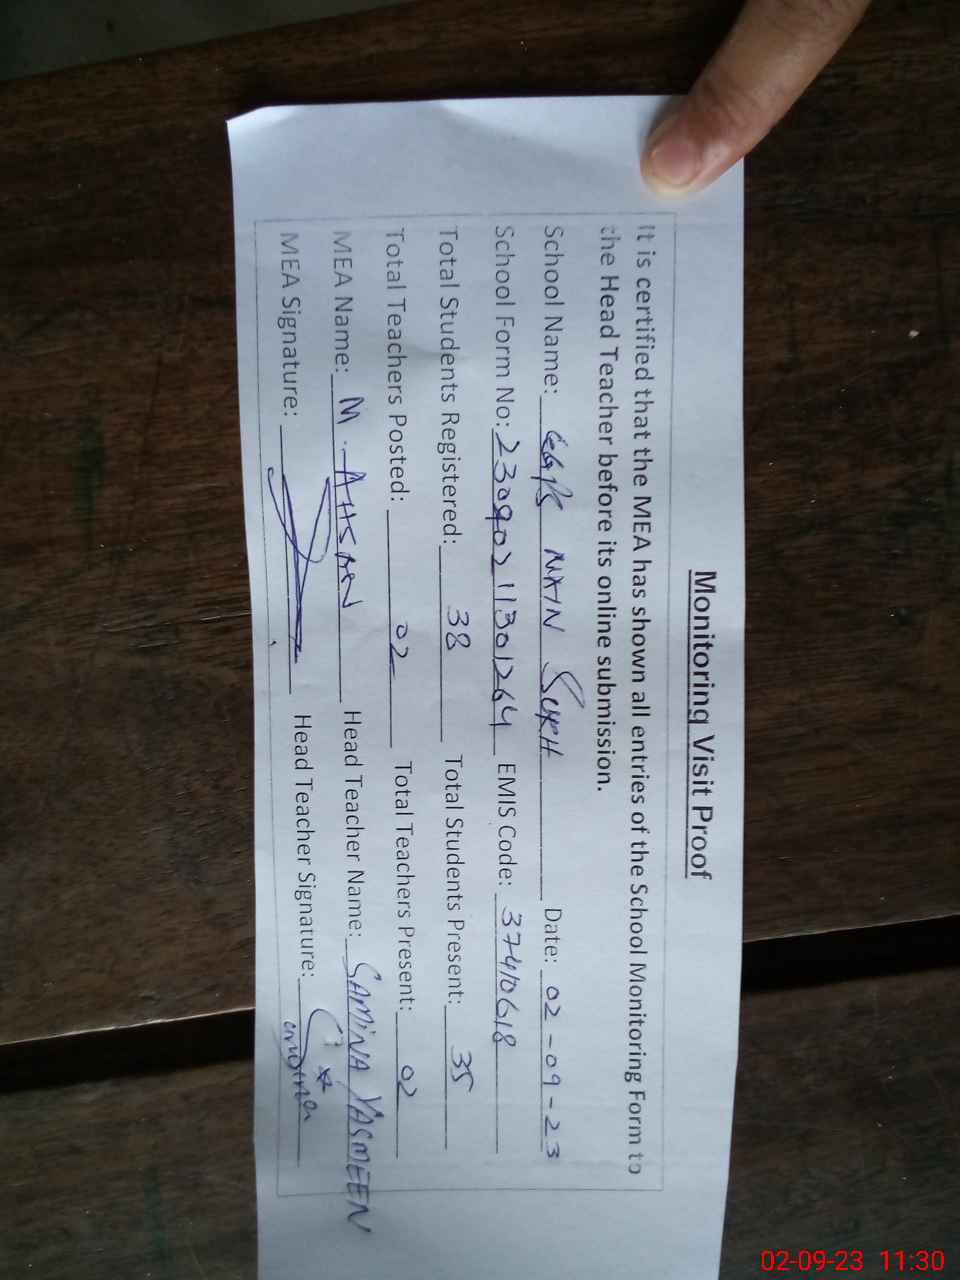 Monitoring Visit Proof
It is certified that the MEA has shown all entries of the School Monitoring Form to
the Head Teacher before its online submission.
School Name: GGPS NAIN SUKH Date: 02-09-23
School Form No: 23090211301264 EMIS Code: 37410618
Total Students Registered: 38 Total Students Present: 35
Total Teachers Posted: 02 Total Teachers Present: 02
MEA Name: M. AHSAN Head Teacher Name: SAMINA YASMEEN
MEA Signature: Head Teacher Signature:
02-09-23 11:30